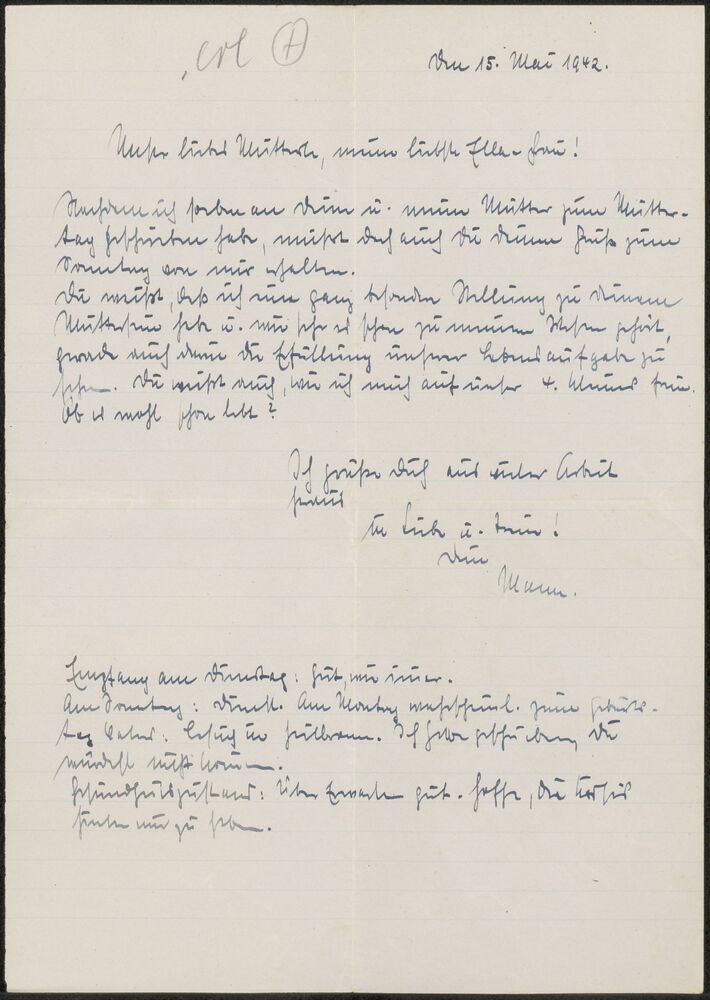 erl
Den 15. Mai 1942.
Unser liebes Mutterle, meine liebste Ella-Frau!
Nachdem ich soeben an Deine u. meine Mutter zum Mutter-
tag geschrieben habe, mußt doch auch Du Deinen Gruß zum
Sonntag von mir erhalten.
Du weißt, daß ich eine ganz besondere Stellung zu Deinem
Muttersein habe u. wie sehr es schon zu meinem Wesen gehört,
gerade auch darin die Erfüllung unserer Lebensaufgabe zu
sehen. Du weißt auch, wie ich mich auf unser 4. Kleines freue.
Ob es wohl schon lebt?
Ich grüße Dich aus vieler Arbeit
heraus
in Liebe u. Treue!
Dein
Mann.
Empfang am Dienstag: gut, wie immer.
Am Sonntag: Dienst. Am Montag wahrscheinl. zum Geburts-
tag Vaters: Besuch in Heilbronn. Ich habe geschrieben, Du
würdest nicht kommen.
Gesundheitszustand: Über Erwarten gut. Hoffe, die
hinter mir zu haben.